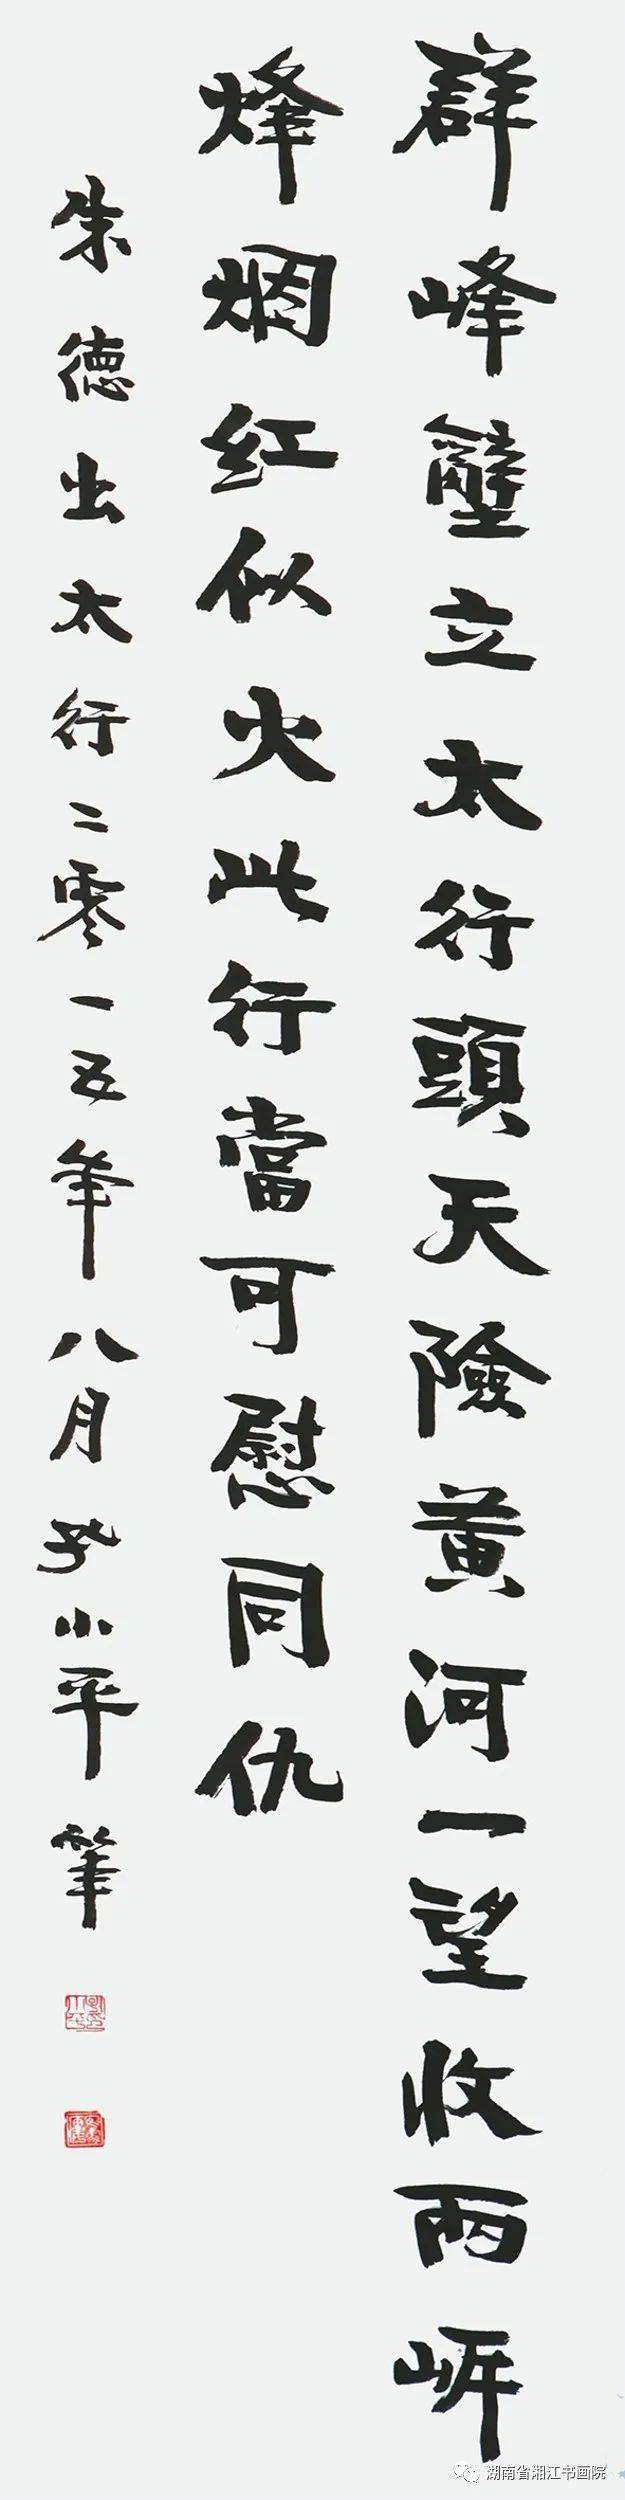 群峰壁立太行頭天險黄河一望收两岸
烽烟红似火此行當可慰同仇
朱德出太行二零一五年八月孔小平筆
湖南省湘江书画院